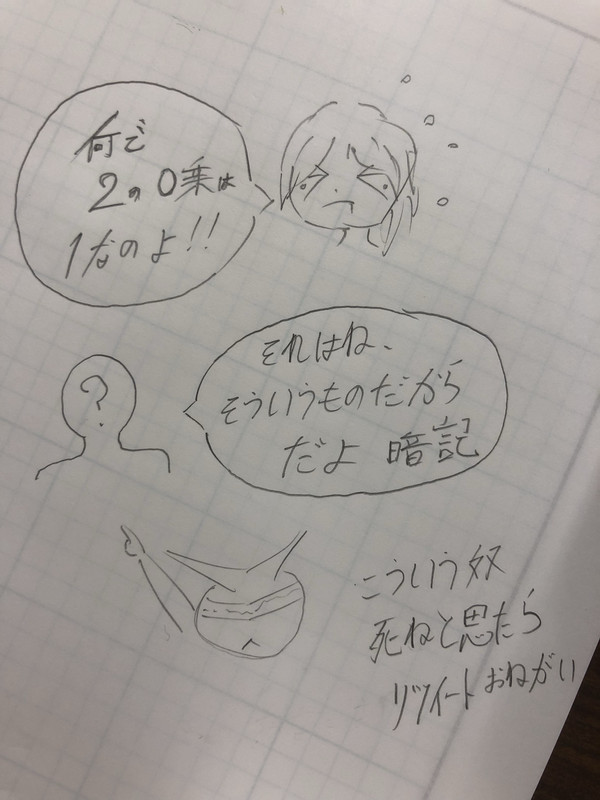 何で
2の0乗は
1なのよ!!
?
それはね、
そういうものだから
だよ 暗記
こういう奴
死ねと思たら
リツイートおねがい